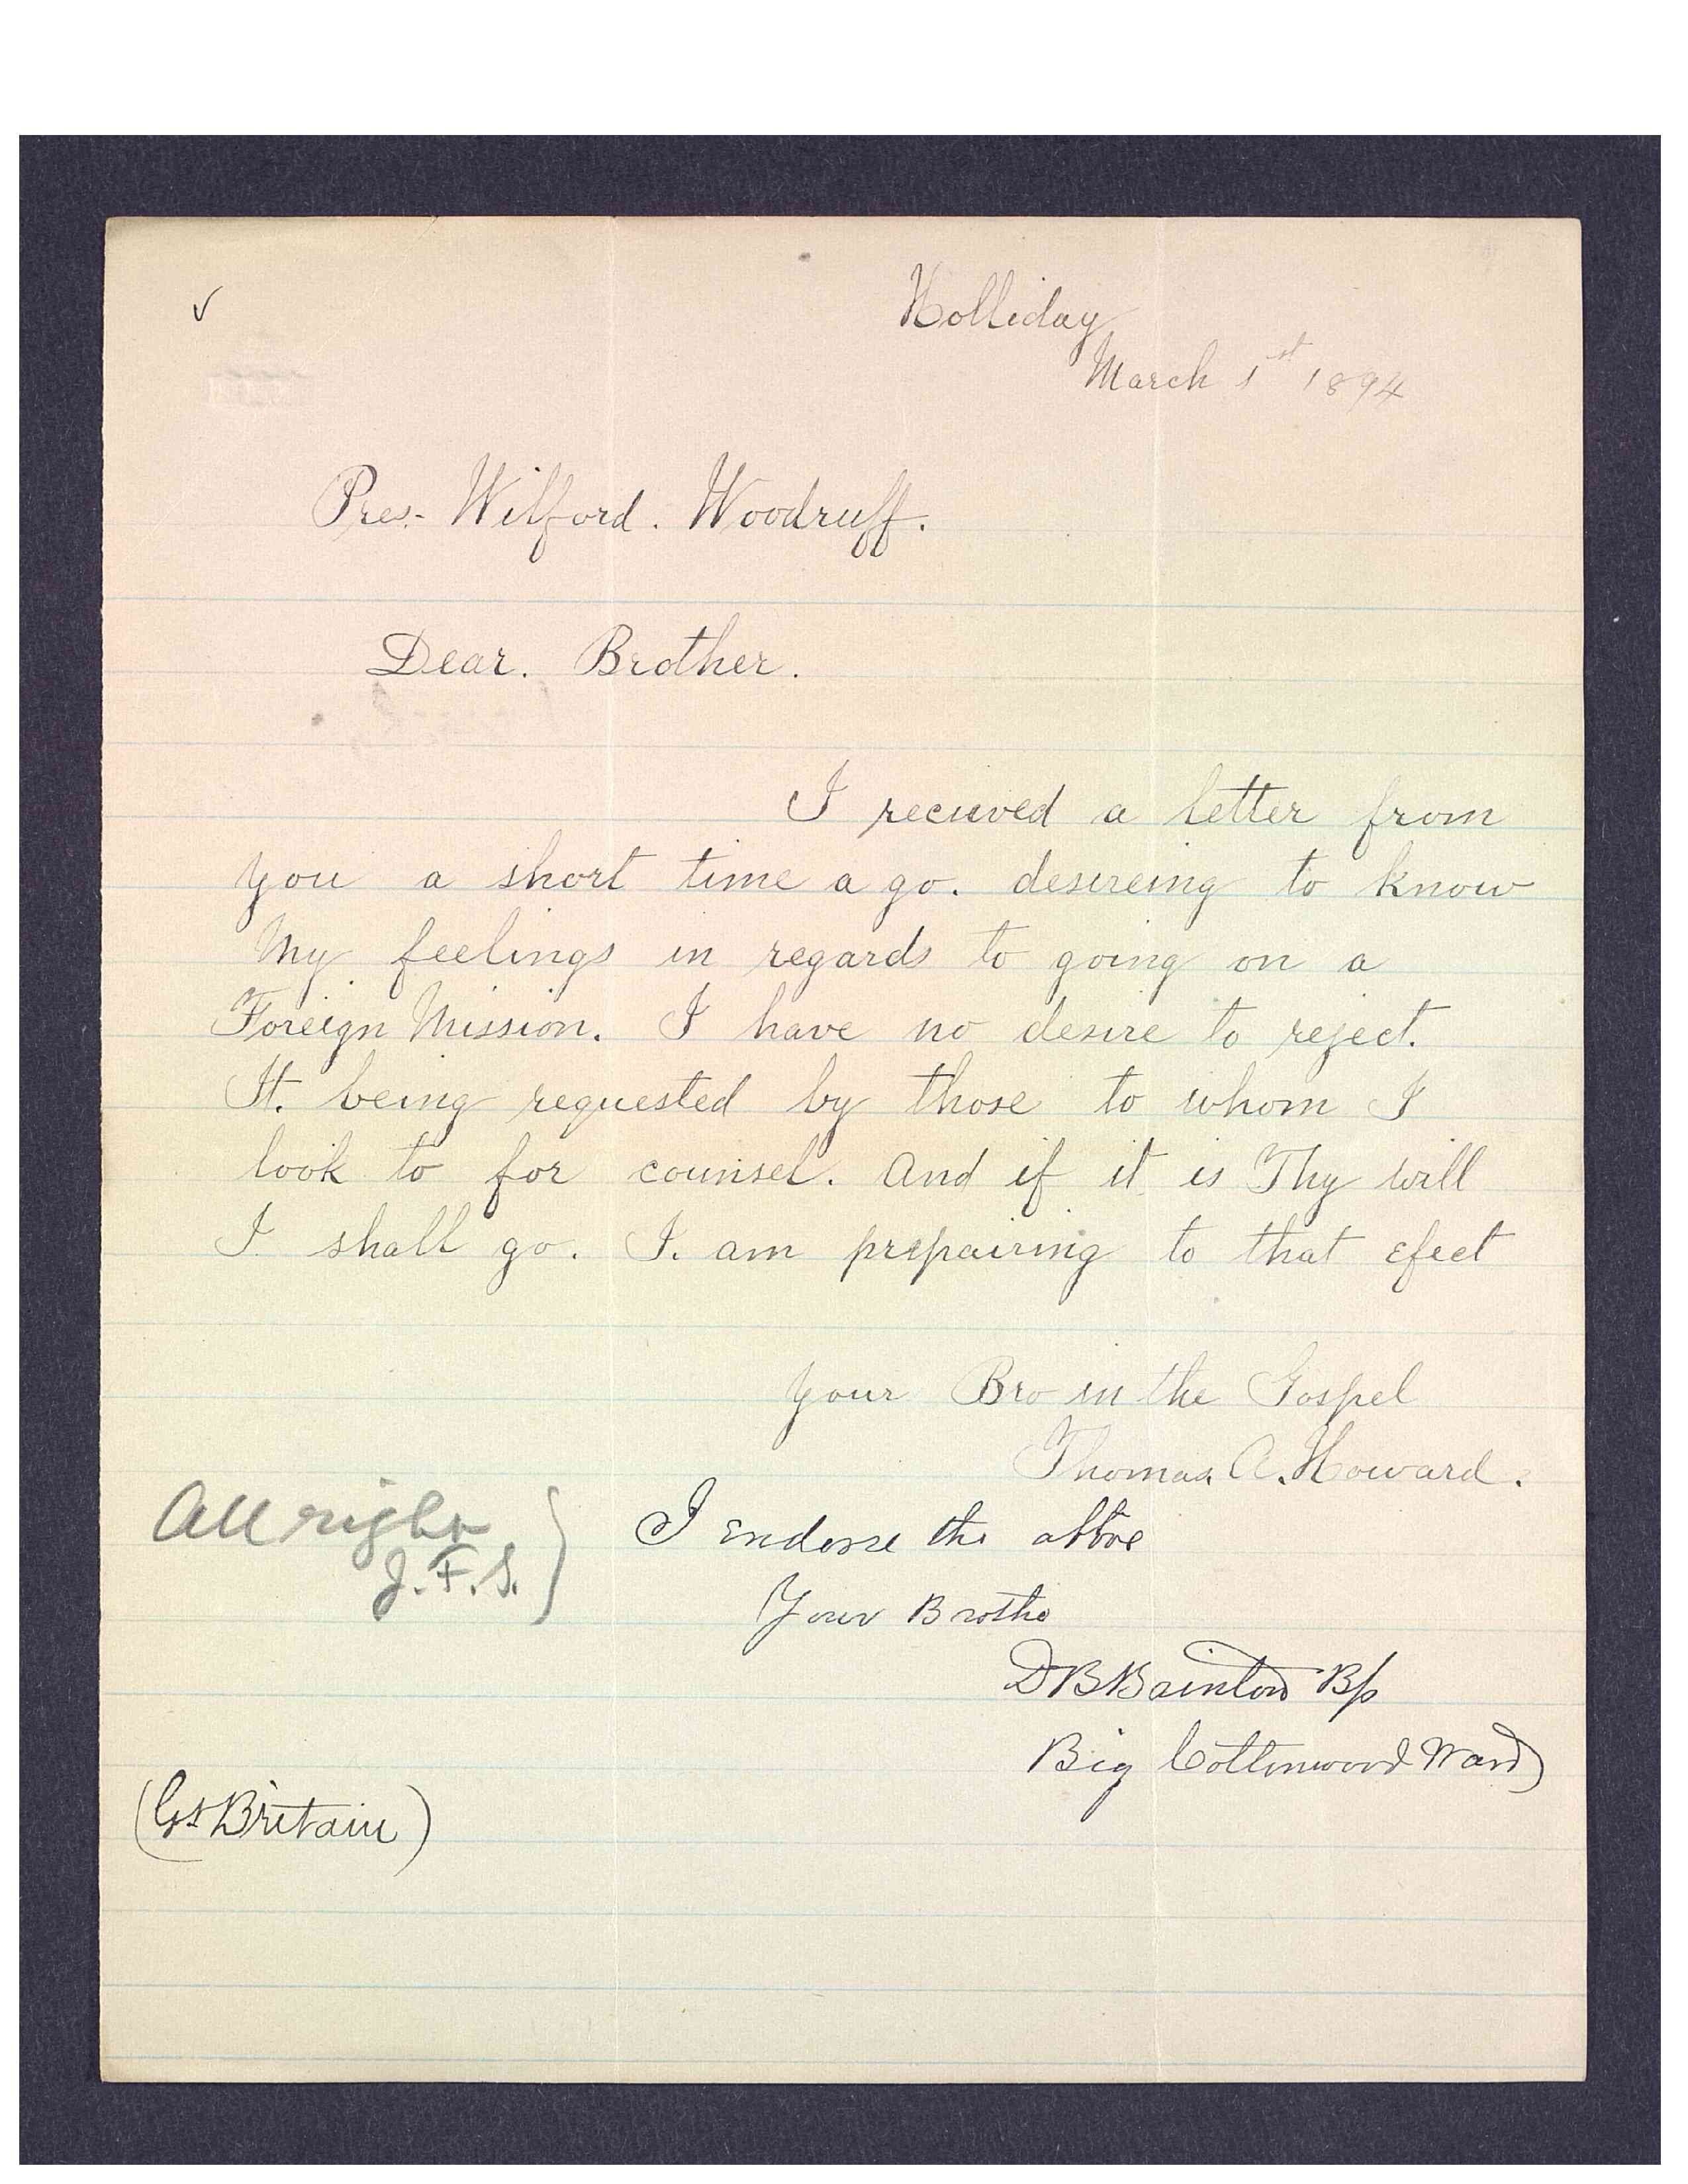 ✓
Holliday
March 1st 1894
Pres- Wilford. Woodruff.
Dear. Brother.
I recieved a letter from
you a short time a go. desireing to know
My feelings in regards to going on a
Foreign Mission. I have no desire to reject.
It. being requested by those to whom I
look to for counsel. And if it is Thy will
I shall go. I. am prepairing to that efect
your Bro in the Gospel
Thomas. A. Howard.
All right
J. F. S. }
I Endorse the above
Your Brothe
D B Brinton Bp
Big Cottonwood Ward
(Gt Britain)